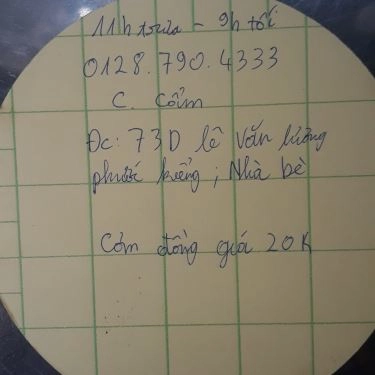 11h trưa - 9h tối
0128.790.4333
C. Cẩm
Đc: 73D lê Văn lương
phước kiểng ; Nhà bè
Cơm đồng giá 20K